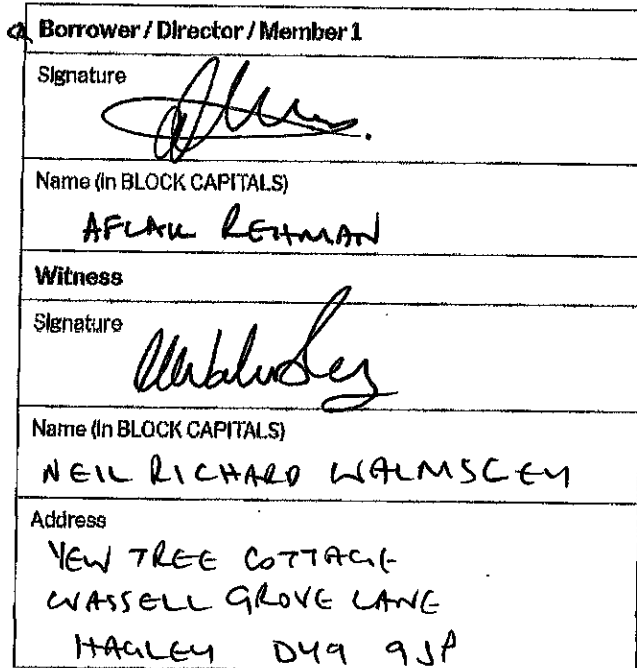 Borrower / Director / Member 1
Signature
Name (in BLOCK CAPITALS)
AFLAK REHMAN
Witness
Signature
Name (in BLOCK CAPITALS)
NEIL RICHARD WALMSLEY
Address
YEW TREE COTTAGE
WASSELL GROVE LANE
HAGLEY DY9 9JP